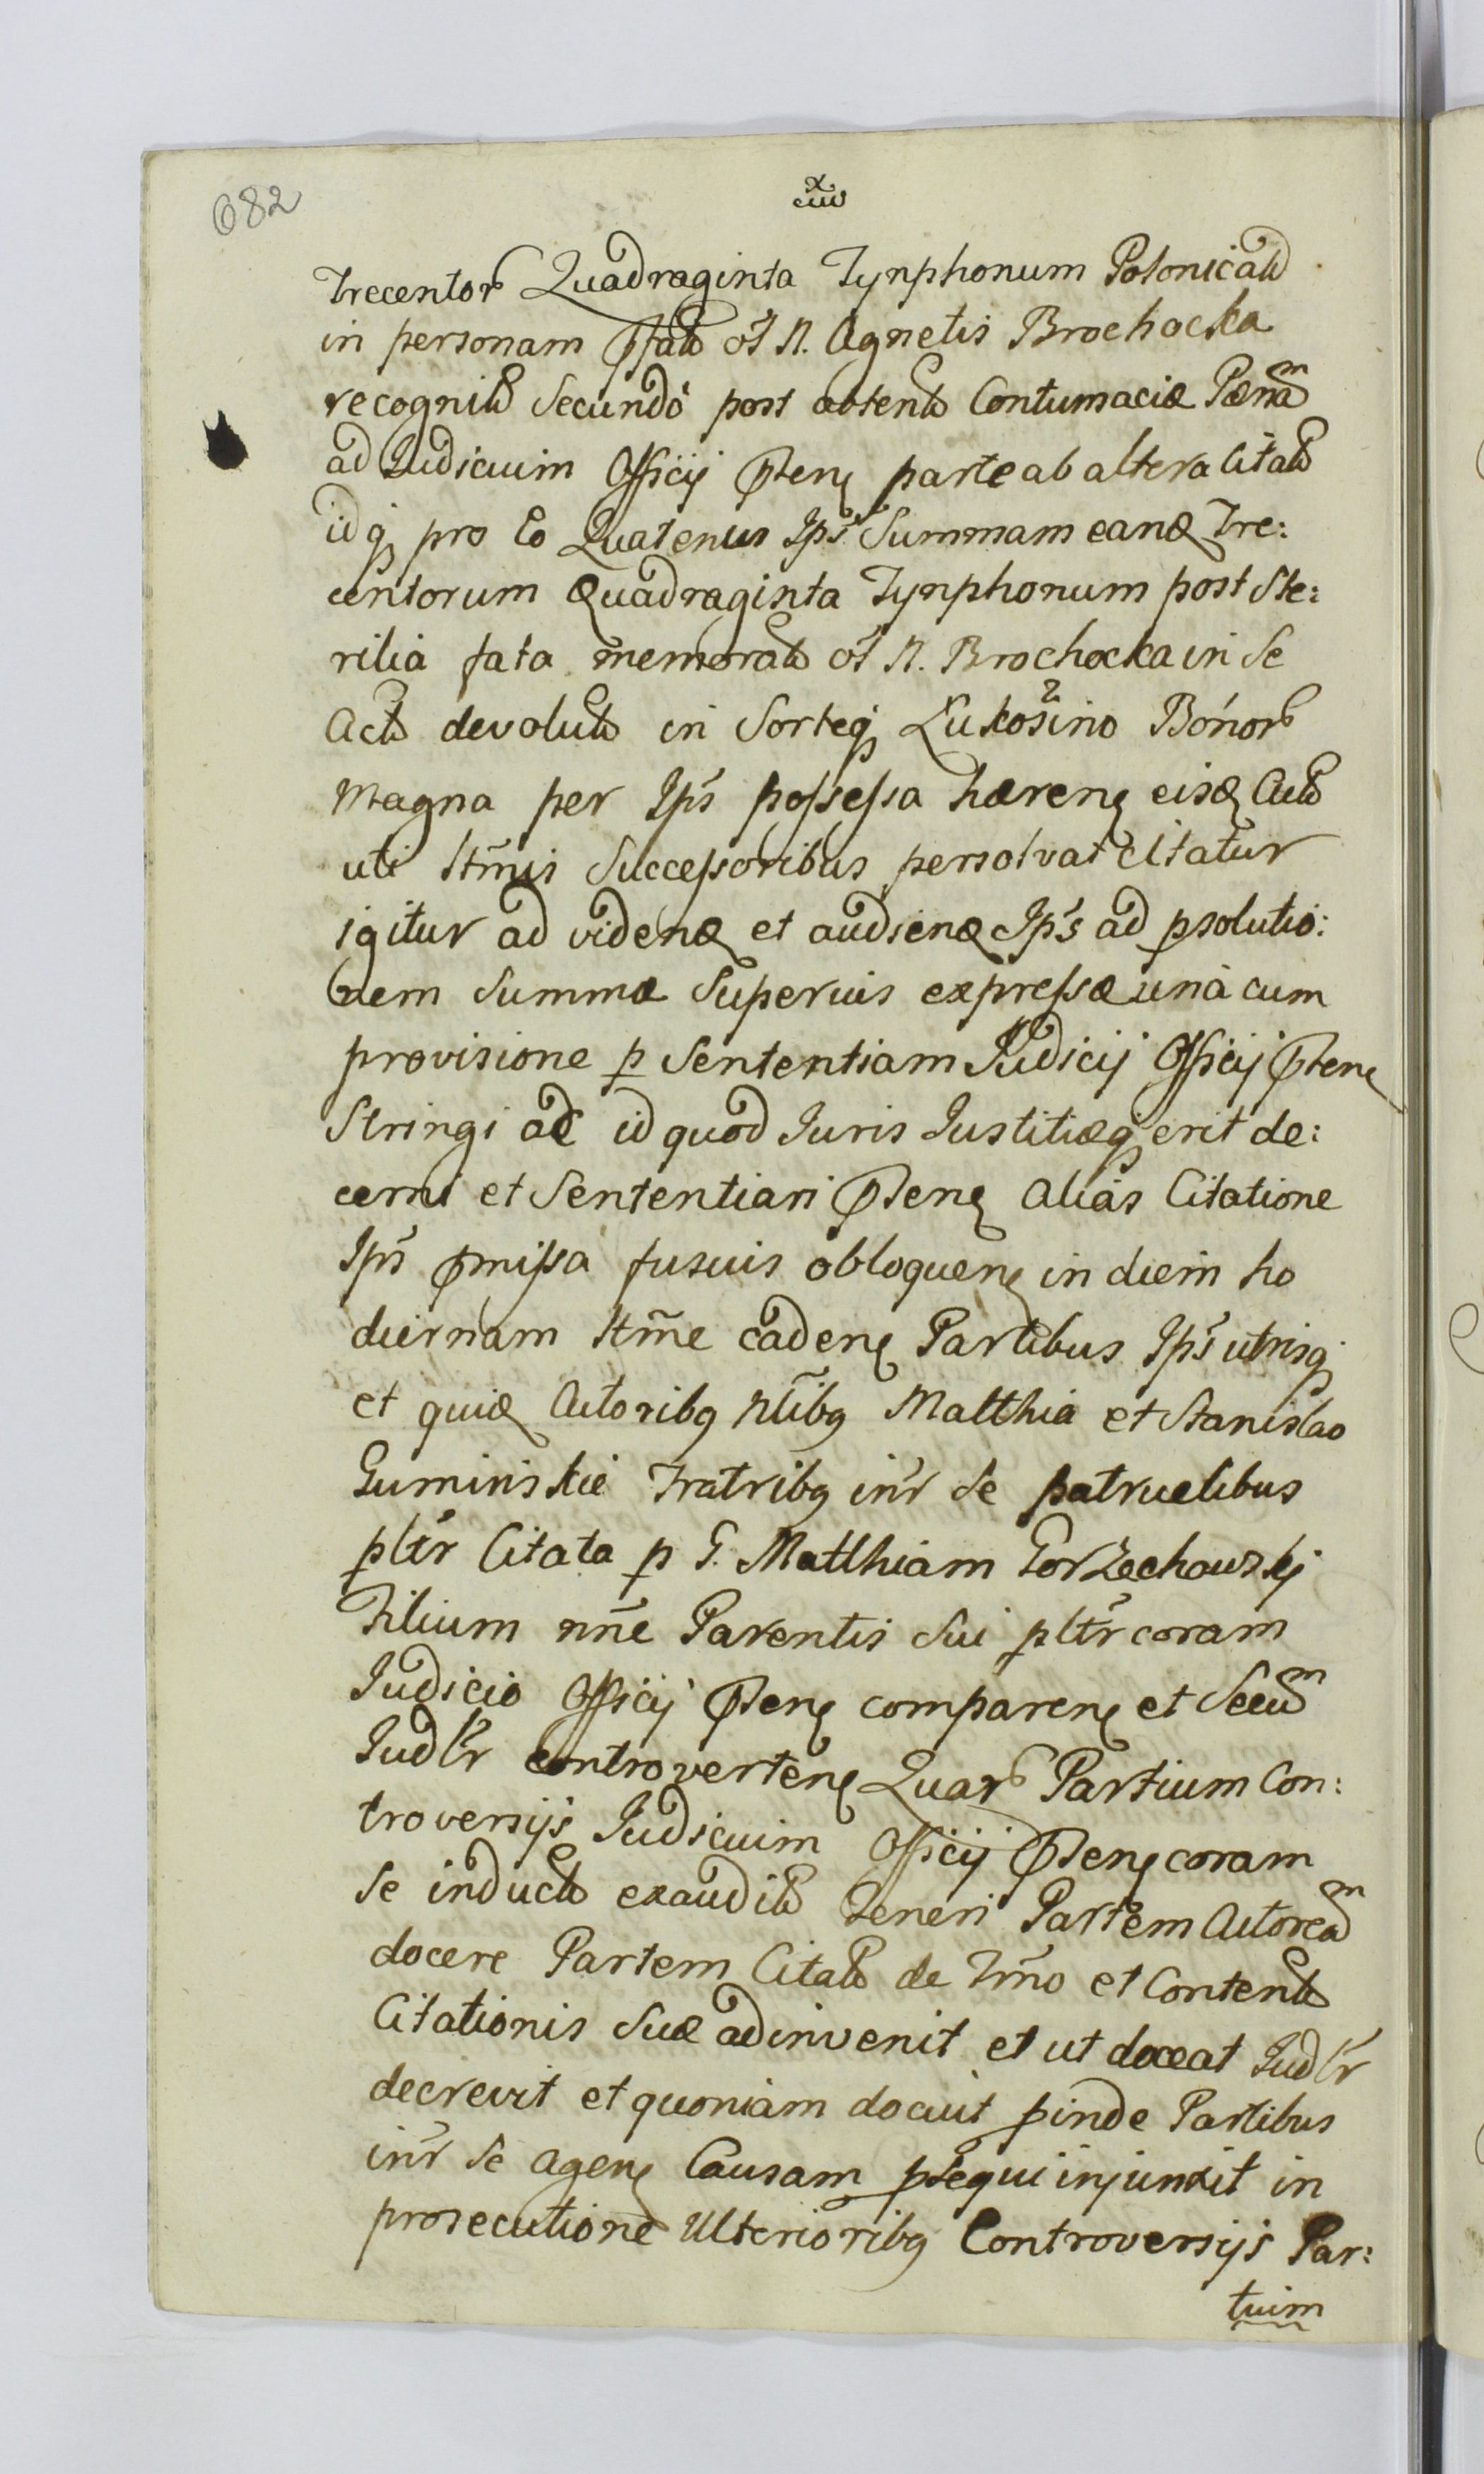 682
Trecentor Quadraginta Tynphonum Polonical
in personam pfat ol N. Agnetis Brochocka
recognit Secundo post obtent Contumaciæ Pænam
ad Judicium Officij pten parte ab altera Citat
idq pro Eo Quatenus Ips Summam eand Tre:
centorum Quadraginta Tynphonum post Ste:
rilia fata memorat ol N. Brochocka in Se
Act devolut in Sorteq Łukosino Bonor
Magna per Ips possessa hæren eisd Act
uti ltmis Successoribus persolvat Citatur
igitur ad vidend et audiend Ips ad psolutio:
nem Summæ Superius expressæ una cum
provisione p Sententiam Judicij Officij pten
Stringi ac id quod Juris Justitiæq erit de:
cerni et Sententiari pten alias Citatione
Ips pmissa fusius obloquen in diem ho
diernam ltme caden Partibus Ips utrisq
et quid Actoribq Nlibq Matthia et Stanislao
Guminskie Fratribq intr Se patruelibus
pltr Citata p G. Matthiam Gorzechowskj
Filium nne Parentis Sui pltr coram
Judicio Officij pten comparen et Secum
Judlr controverten Quar Partium Con:
troversijs Judicium Officij pten coram
Se induct exaudit teneri Partem Actoream
docere Partem Citat de Trno et Content
Citationis Suæ adinvenit et ut doceat Judlr
decrevit et quoniam docuit pinde Partibus
intr Se agen Causam psequi injunxit in
prosecutione Ulterioribq Controversijs Par:
tium